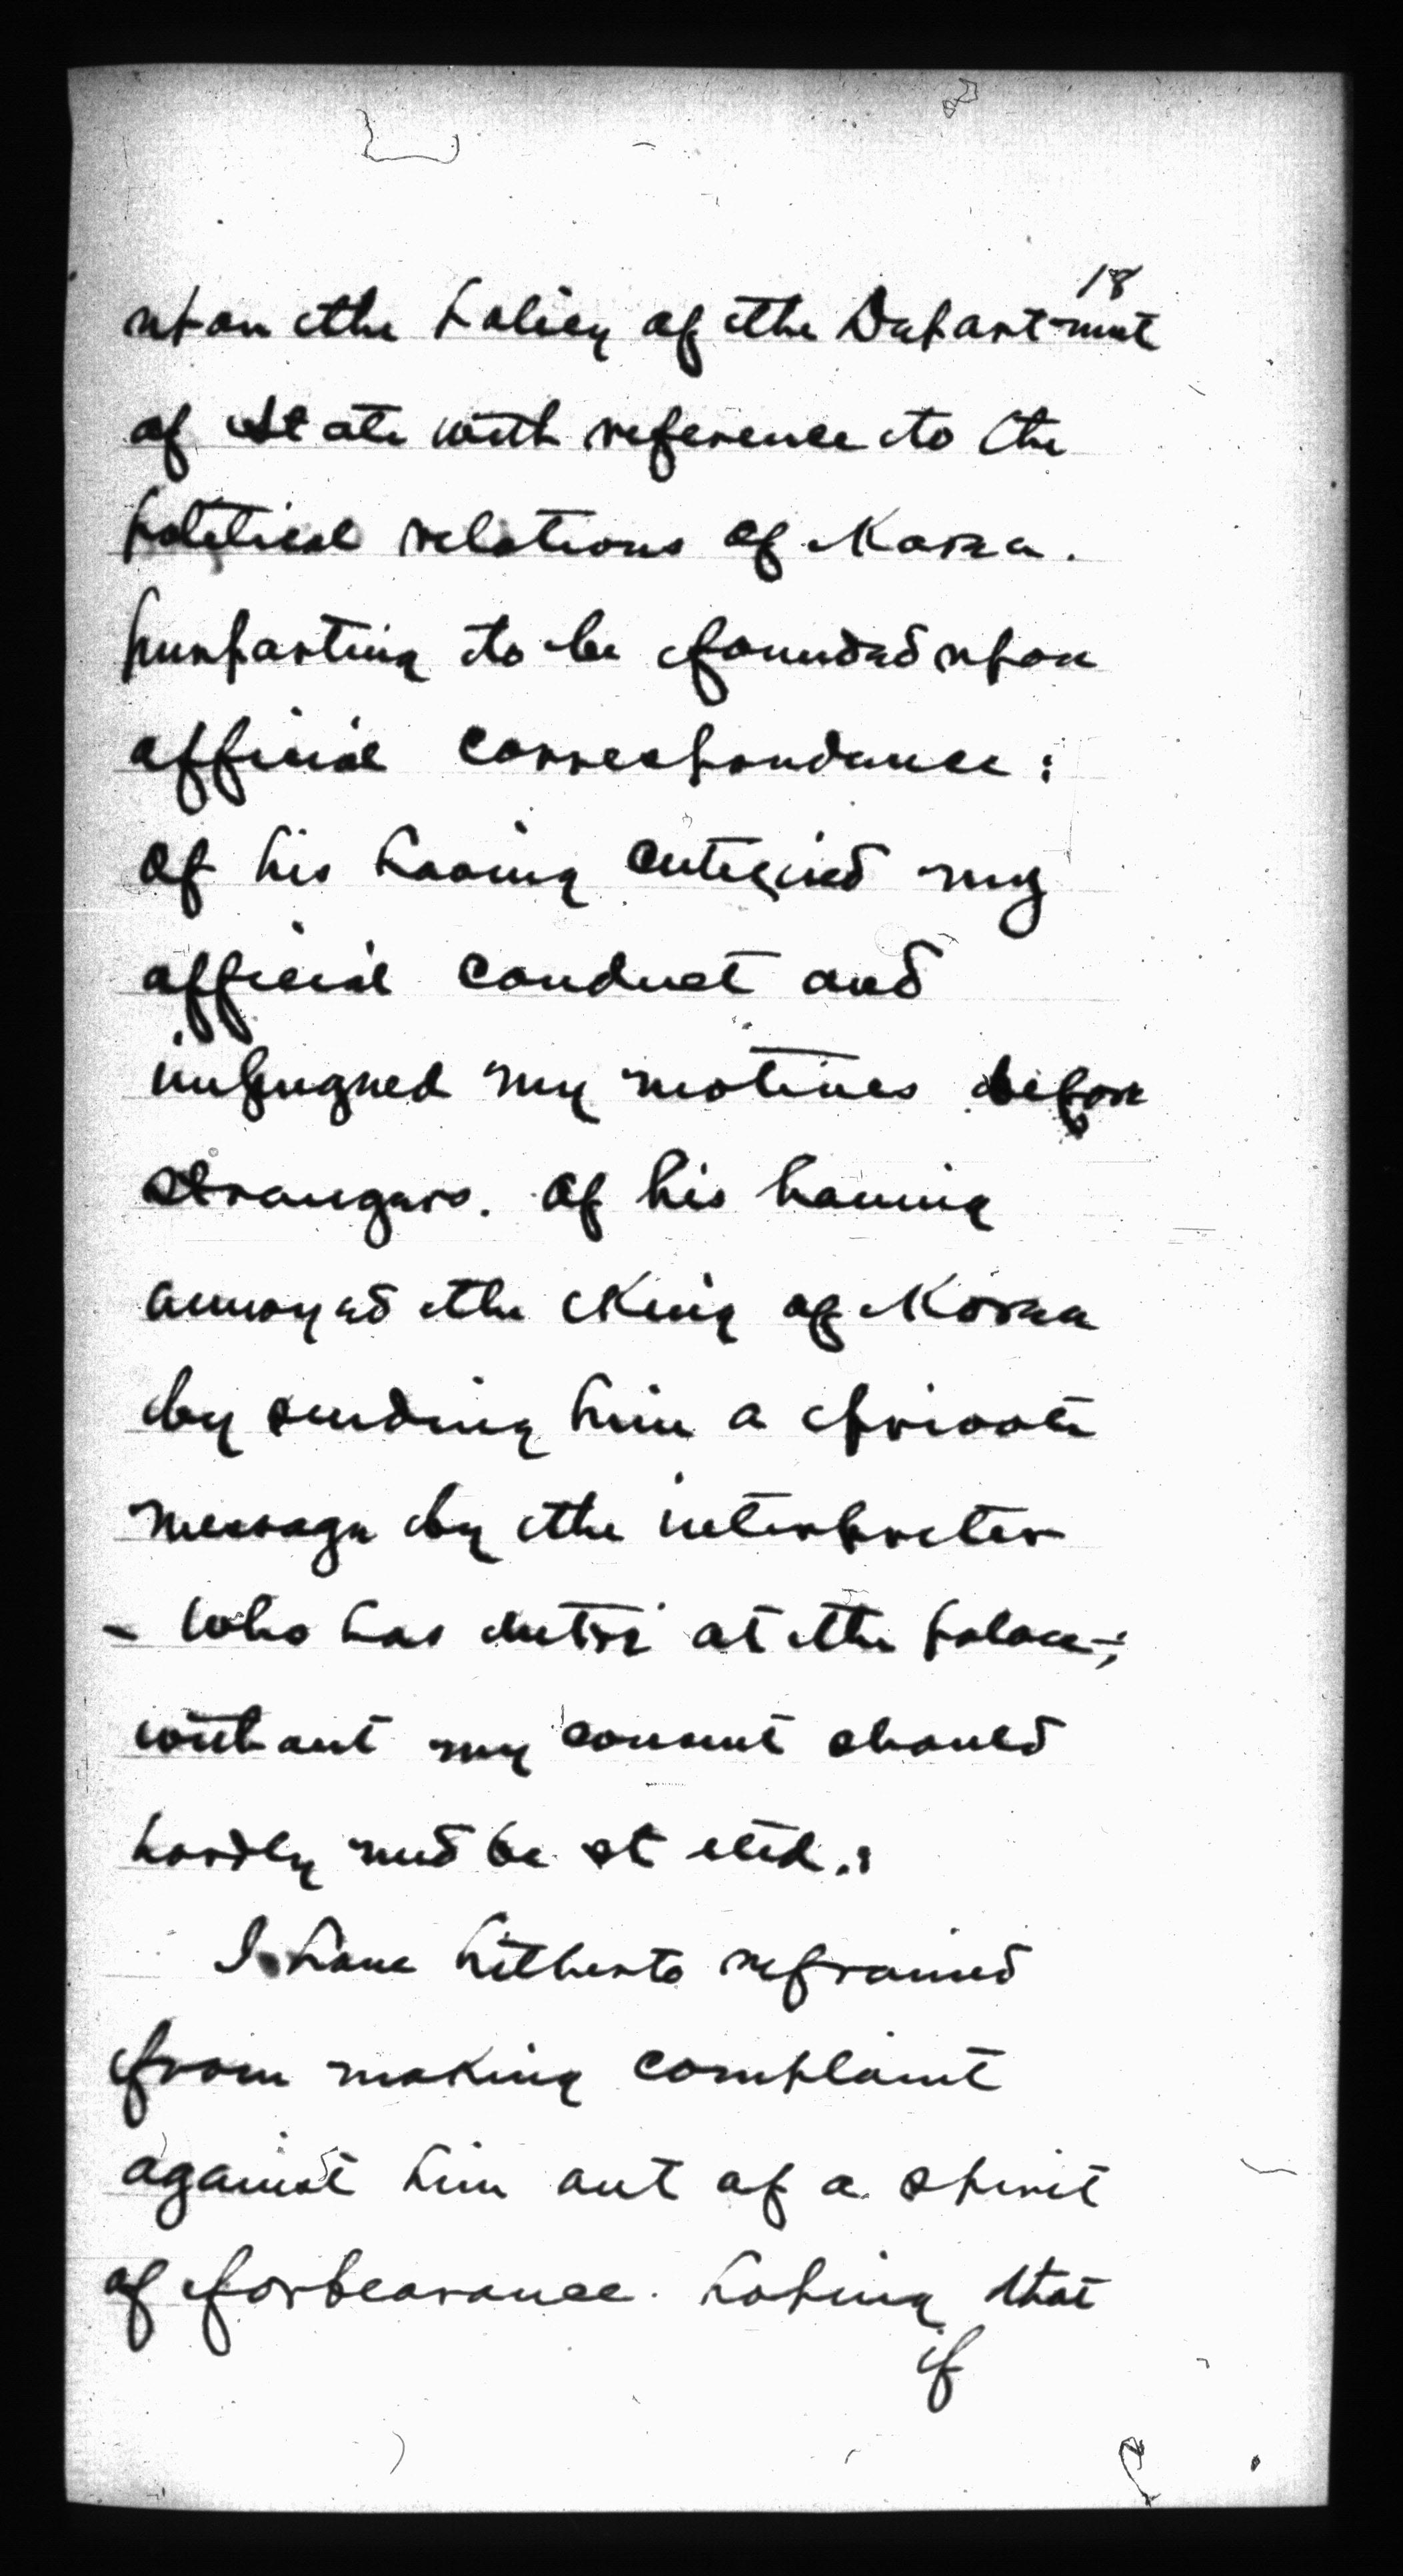 18
upon the policy of the Department
of State with reference to the
political relations of Korea.
purporting to be founded upon
official correspondence:
of his having criticised my
official conduct and
impugned my motives before
strangers. Of his having
annoyed the King of Korea
by sending him a private
message by the interpreter
- who has entré at the palace-;
without my consent should
hardly need be stated.:
I have hitherto refrained
from making complaint
against him out of a spirit
of forbearance. hoping that
if